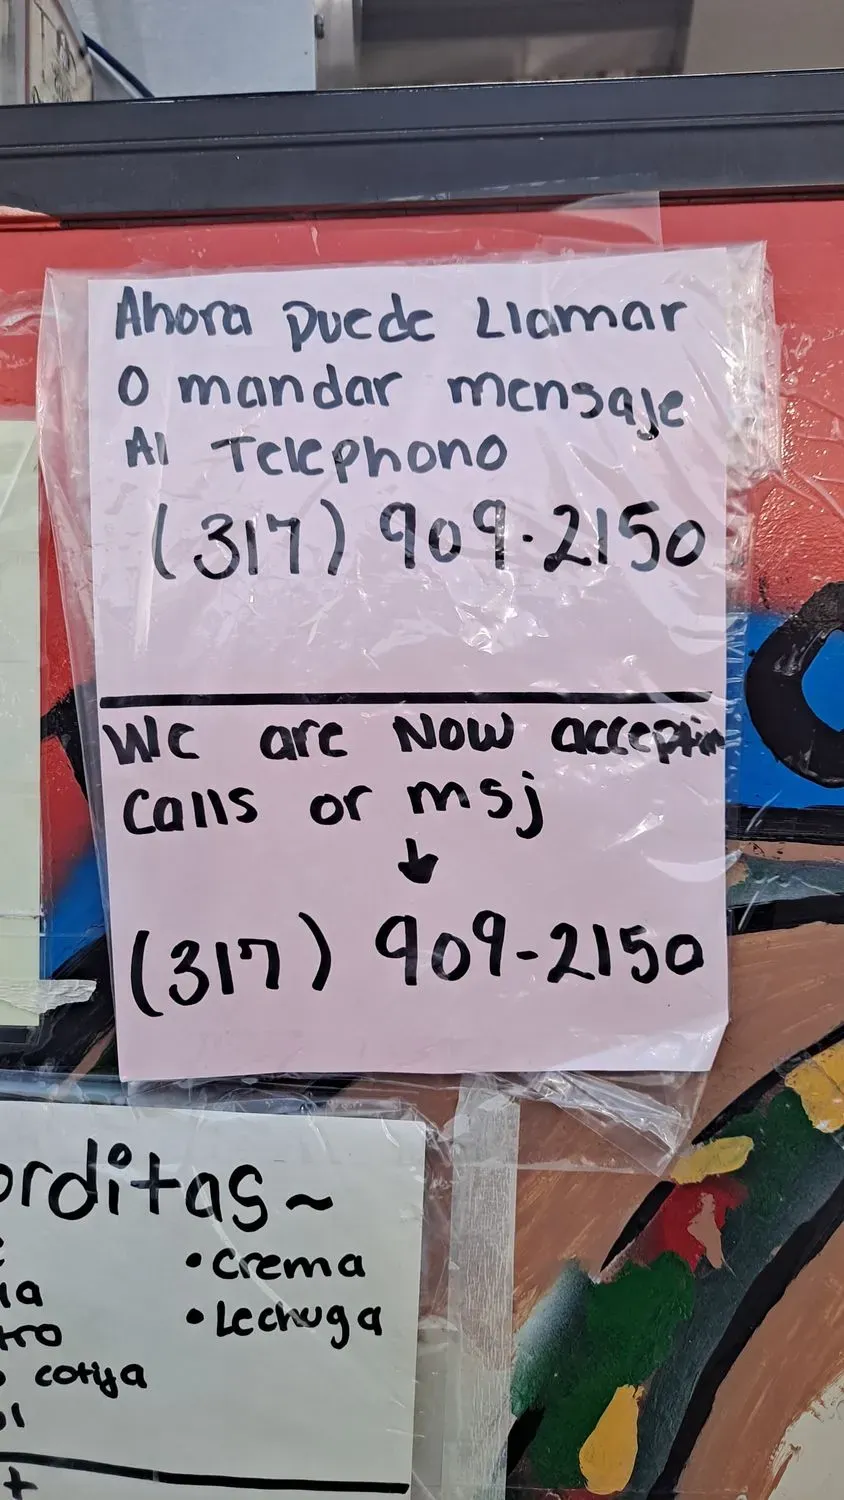 Ahora puede Llamar
O mandar mensaje
Al Telephono
(317) 909-2150
We are Now acceptin
Calls or msj
(317) 909-2150
orditas ~
• Crema
• Lechuga
cotija